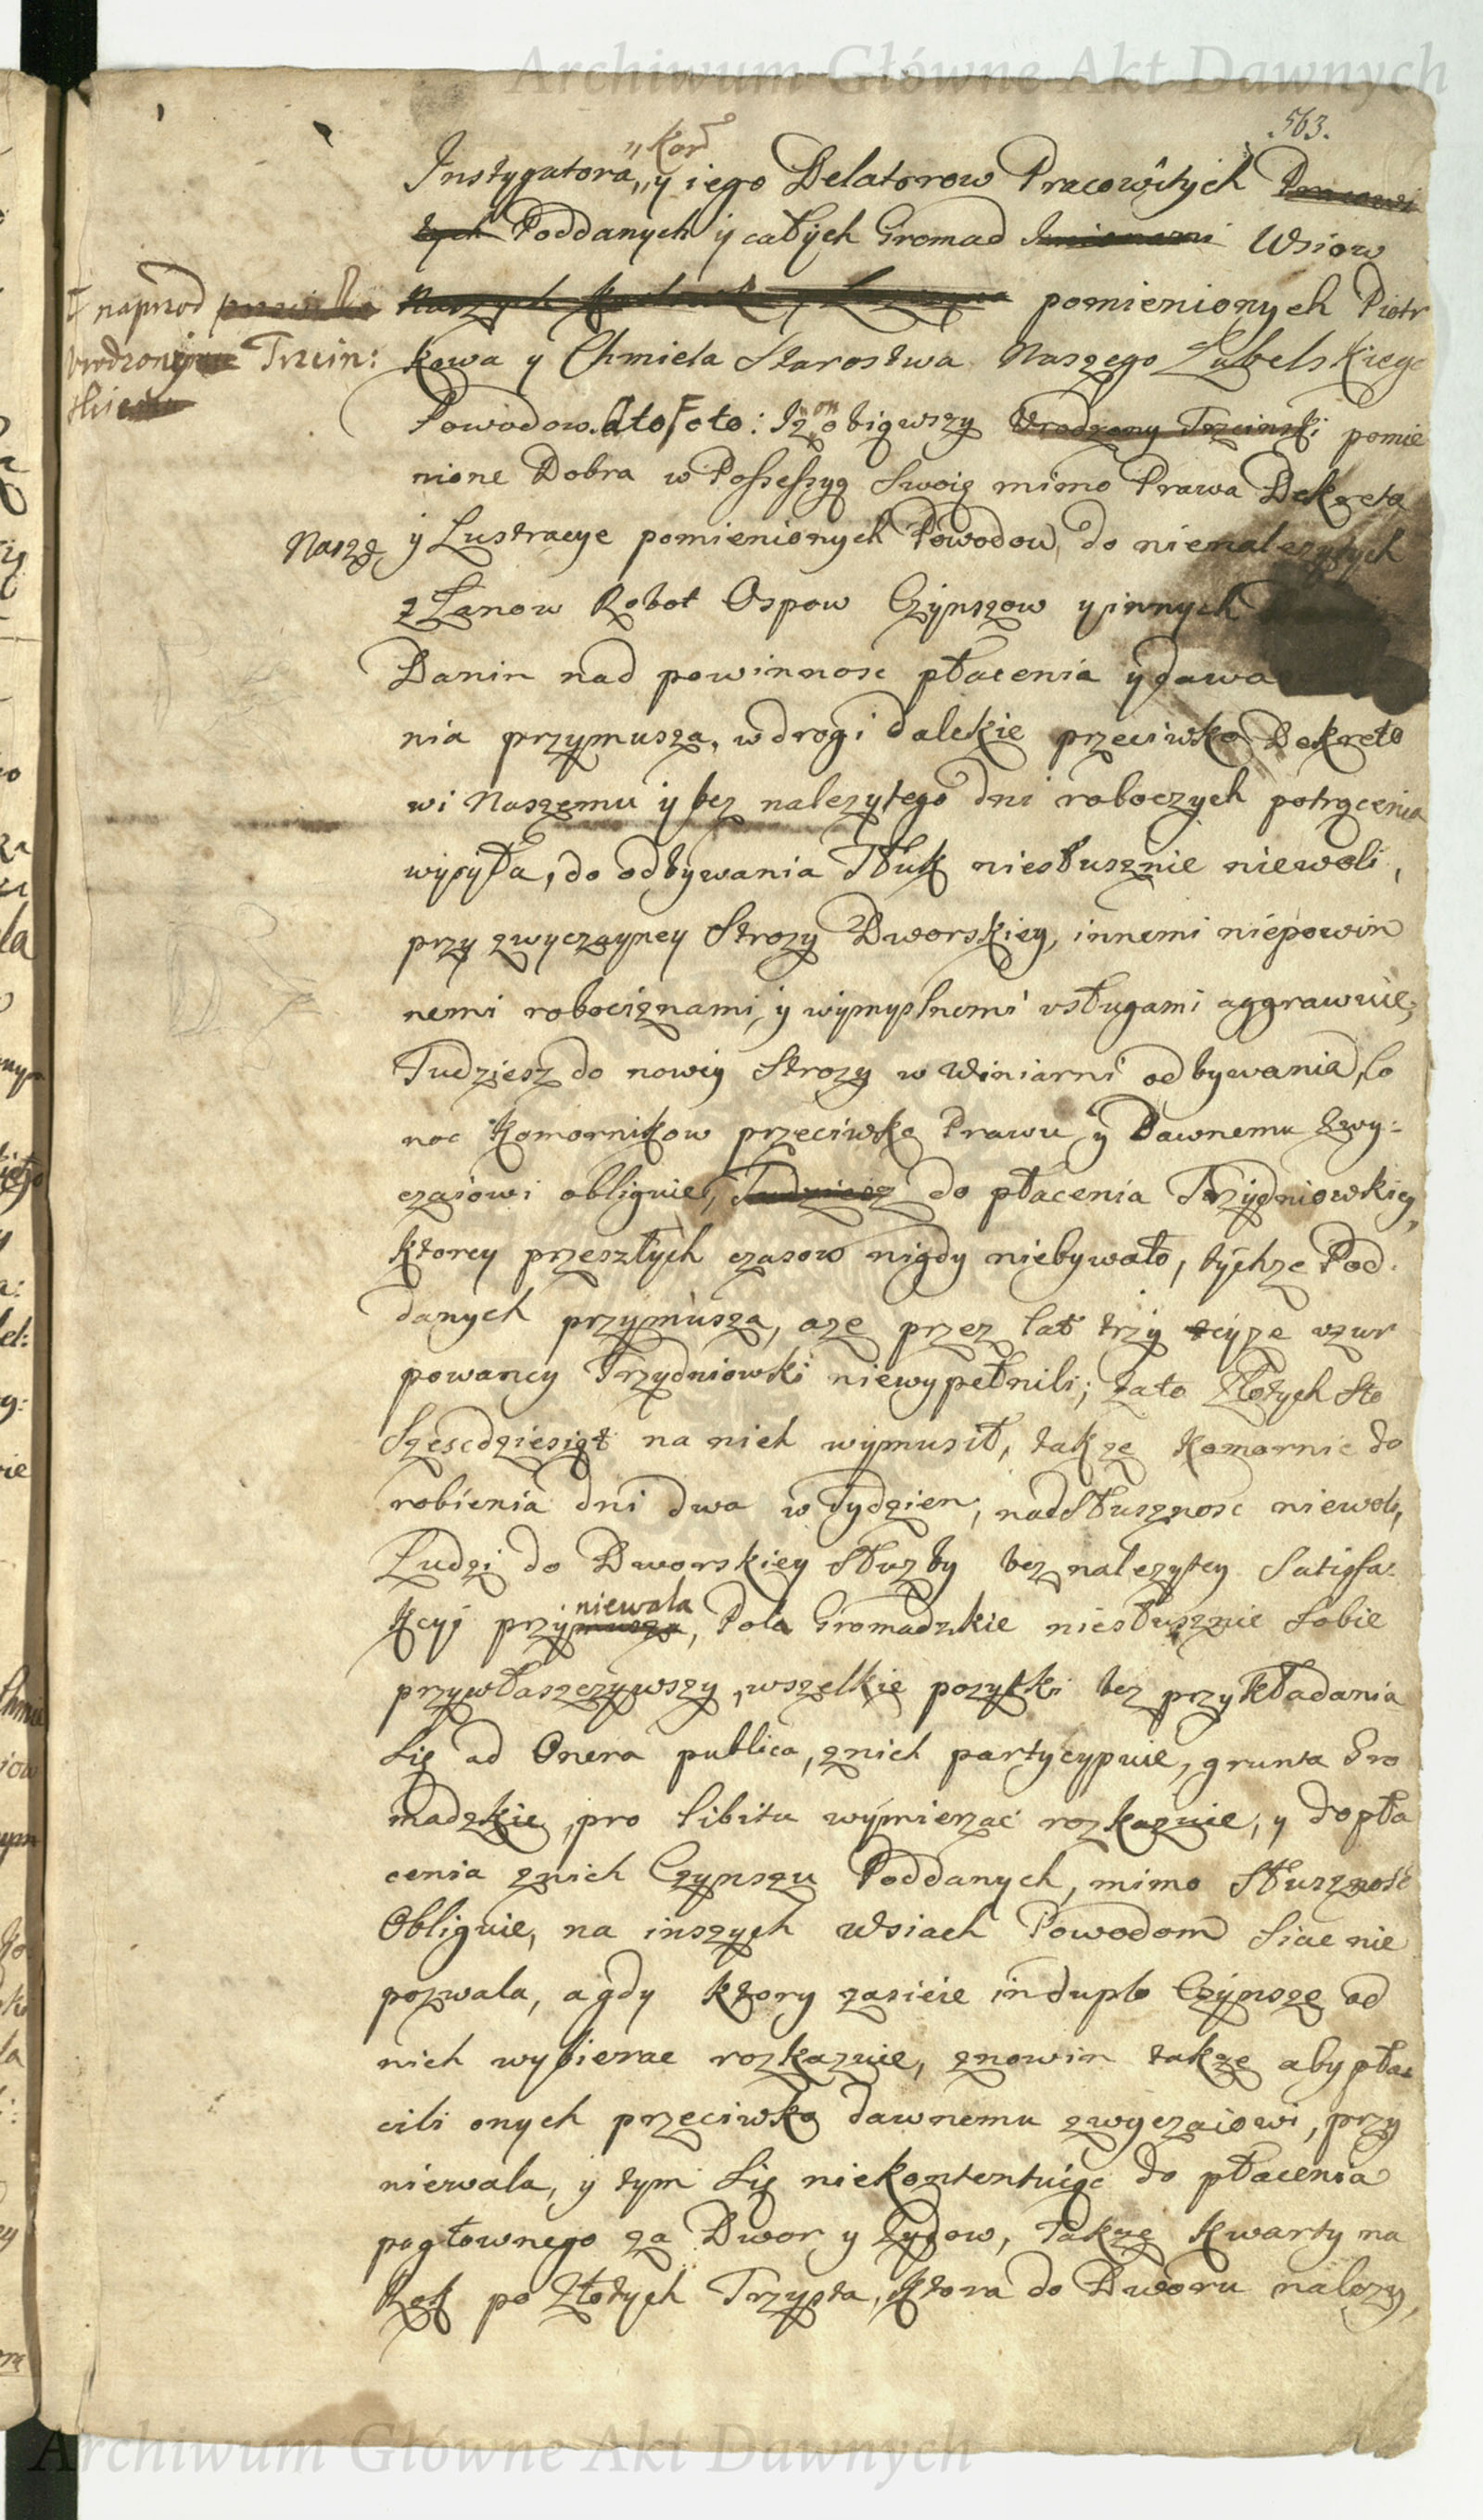 Archiwum Główne Akt Dawnych
563.
Kor
Instygatora „ y iego Delatorow Pracowitych Pracowi
tych Poddanych y całych Gromad Imionami Wsiow
pomienionych Piotr
naprzod
Trzcin:
kowa y Chmiela Starostwa Naszego Lubelskiego
Powodow. Ato Foto: Iz on obiąwszy Urodzony Trzcinski pomie
nione Dobra w Possessyą Swoię mimo Prawa Dekreta
Naszę y Lustracye pomienionych Powodow, do nienalezytych
z Łanow Robot Ospow Czynszow y innych
Danin nad powinnosc płacenia y dawa
nia przymusza, w drogi dalekie przeciwko Dekreto
wi Naszemu y bez nalezytego dni roboczych potrącenia
wysyła, do odbywania Stuk niesłusznie niewoli,
przy zwyczayney Strozy Dworskiey, innemi niepowin
nemi robociznami, y wymyslnemi usługami aggrawuie,
Tudziesz do nowey Strozy w Winiarni odbywania, co
noc Komornikow przeciwko Prawu y Dawnemu Zwy:
czaiowi obliguie, Tudziesz do płacenia Trzydniowkiey,
ktorey przeszłych czasow nigdy niebywało, tychze Pod:
danych przymusza, aze przez lat trzy teyze uzur
powaney Trzydniowki niewypełnili; zato Złotych Sto
Szescdziesiąt na nich wymusił, takze Komornic do
robienia dni dwa w Tydzien, nad Słusznosc niewoli,
Ludzi do Dworskiey Słuzby bez nalezytey Satisfa:
niewala
kcyi przymusza, Pola Gromadzkie niesłusznie Sobie
przywłaszczywszy, wszelkie pozytki bez przykładania
Się ad Onera publica, znich partycypuie, grunta Gro
madzkie, pro libitu wymierzać rozkazuie, y do pła
cenia znich Czynszu Poddanych, mimo Słuszność
Obliguie, na inszych Wsiach Powodom Siac nie
pozwala, a gdy ktory zasieie in duplo Czynsze od
nich wybierac rozkazuie, znowin takze aby pła
cili onych przeciwko dawnemu zwyczaiowi, przy
niewala, y tym Się niekontentuiąc do płacenia
pogłownego za Dwor y Zydow, Takze Kwarty na
Rok po Złotych Trzysta, ktora do Dworu nalezy,
Archiwum Główne Akt Dawnych